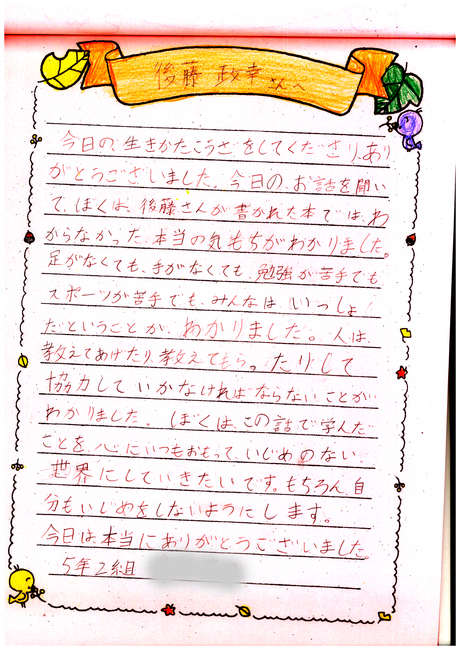 後藤 政幸さんへ
今日の、生きかたこうざをしてくださり、あり
がとうございました。今日の、お話を聞い
て、ぼくは、後藤さんが書かれた本では、わ
からなかった、本当の気もちがわかりました。
足がなくても、手がなくても、勉強が苦手でも
スポーツが苦手でも、みんなは、いっしょ
だということが、わかりました。人は、
教えてあげたり、教えてもら。たりして
協力していかなければならないことが
わかりました。ぼくは、この話で学んだ
ことを、心にいつもおもって、いじめのない、
世界にしていきたいです。もちろん、自
分もいじめをしないようにします。
今日は、本当にありがとうございました。
5年2組